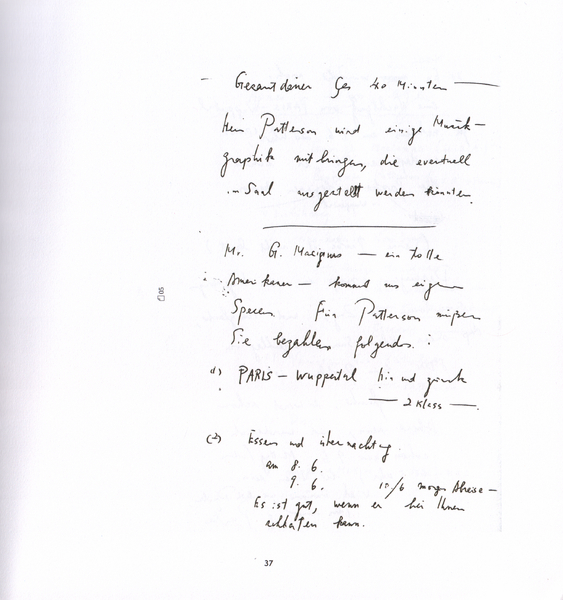 — Gesamtdauer ges 40 Minuten —
Herr Patterson wird einige Musik-
graphik mitbringen, die eventuell
im Saal ausgestellt werden könnten.
Mr. G. Maciunas — ein tolle
Amerikaner — kommt aus eigen
Spesen. Für Patterson müssen
Sie bezahlen folgendes :
1) PARIS – Wuppertal hin und zurück
— 2 Klass —.
(2) Essen und übernachtung.
am 8. 6.
9. 6. 10/6 morgen Abreise —
Es ist gut, wenn er bei Ihnen
schlafen kann.
37